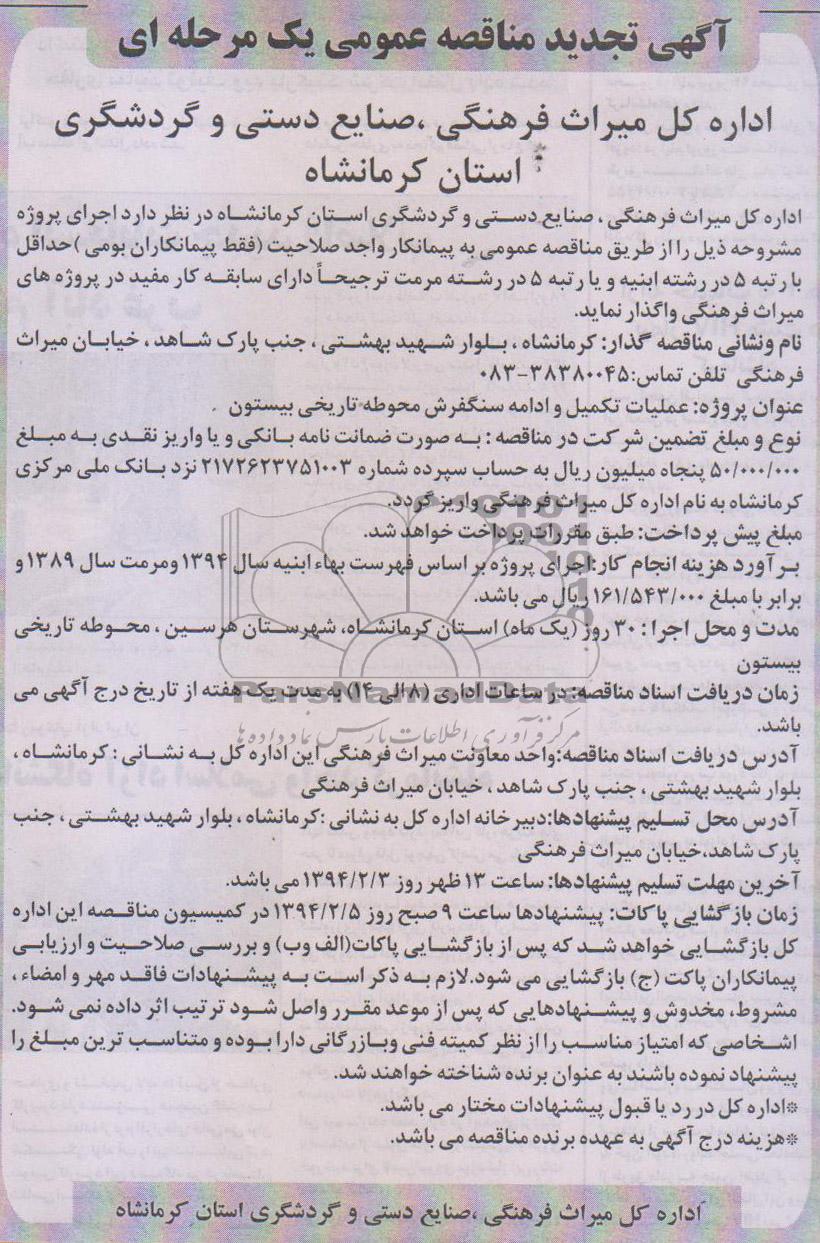 آگهی تجدید مناقصه عمومی یک مرحله ای
اداره کل میراث فرهنگی ،صنایع دستی و گردشگری
استان کرمانشاه
اداره کل میراث فرهنگی ، صنایع دستی و گردشگری استان کرمانشاه در نظر دارد اجرای پروژه
مشروحه ذیل را از طریق مناقصه عمومی به پیمانکار واجد صلاحیت (فقط پیمانکاران بومی )حداقل
با رتبه ۵ در رشته ابنیه و یا رتبه ۵ در رشته مرمت ترجیحاً دارای سابقه کار مفید در پروژه های
میراث فرهنگی واگذار نماید.
نام ونشانی مناقصه گذار: کرمانشاه ، بلوار شهید بهشتی ، جنب پارک شاهد ، خیابان میراث
فرهنگی تلفن تماس:۳۸۳۸۰۰۴۵-۰۸۳
عنوان پروژه: عملیات تکمیل و ادامه سنگفرش محوطه تاریخی بیستون .
نوع و مبلغ تضمین شرکت در مناقصه : به صورت ضمانت نامه بانکی و یا واریز نقدی به مبلغ
۵۰/۰۰۰/۰۰۰ پنجاه میلیون ریال به حساب سپرده شماره ۲۱۷۲۶۲۳۷۵۱۰۰۳ نزد بانک ملی مرکزی
کرمانشاه به نام اداره کل میراث فرهنگی واریز گردد.
مبلغ پیش پرداخت: طبق مقررات پرداخت خواهد شد.
بر آورد هزینه انجام کار:اجرای پروژه بر اساس فهرست بهاء ابنیه سال ۱۳۹۴ ومرمت سال ۱۳۸۹ و
برابر با مبلغ ۱۶۱/۵۴۳/۰۰۰ ریال می باشد.
مدت و محل اجرا : ۳۰ روز (یک ماه) استان کرمانشاه، شهرستان هرسین ، محوطه تاریخی
بیستون
زمان دریافت اسناد مناقصه: در ساعات اداری (۸ الی ۱۴) به مدت یک هفته از تاریخ درج آگهی می
باشد.
ParsNamadData
مرکز فرآوری اطلاعات پارس نماد داده ها
آدرس دریافت اسناد مناقصه:واحد معاونت میراث فرهنگی این اداره کل به نشانی : کرمانشاه ،
بلوار شهید بهشتی ، جنب پارک شاهد ، خیابان میراث فرهنگی
آدرس محل تسلیم پیشنهادها:دبیرخانه اداره کل به نشانی :کرمانشاه ، بلوار شهید بهشتی ، جنب
پارک شاهد،خیابان میراث فرهنگی
آخرین مهلت تسلیم پیشنهادها: ساعت ۱۳ ظهر روز ۱۳۹۴/۲/۳ می باشد.
زمان بازگشایی پاکات: پیشنهادها ساعت ۹ صبح روز ۱۳۹۴/۲/۵ در کمیسیون مناقصه این اداره
کل بازگشایی خواهد شد که پس از بازگشایی پاکات(الف وب) و بررسی صلاحیت و ارزیابی
پیمانکاران پاکت (ج) بازگشایی می شود.لازم به ذکر است به پیشنهادات فاقد مهر و امضاء ،
مشروط، مخدوش و پیشنهادهایی که پس از موعد مقرر واصل شود ترتیب اثر داده نمی شود.
اشخاصی که امتیاز مناسب را از نظر کمیته فنی وبازرگانی دارا بوده و متناسب ترین مبلغ را
پیشنهاد نموده باشند به عنوان برنده شناخته خواهند شد.
*اداره کل در رد یا قبول پیشنهادات مختار می باشد.
*هزینه درج آگهی به عهده برنده مناقصه می باشد.
اداره کل میراث فرهنگی ،صنایع دستی و گردشگری استان کرمانشاه